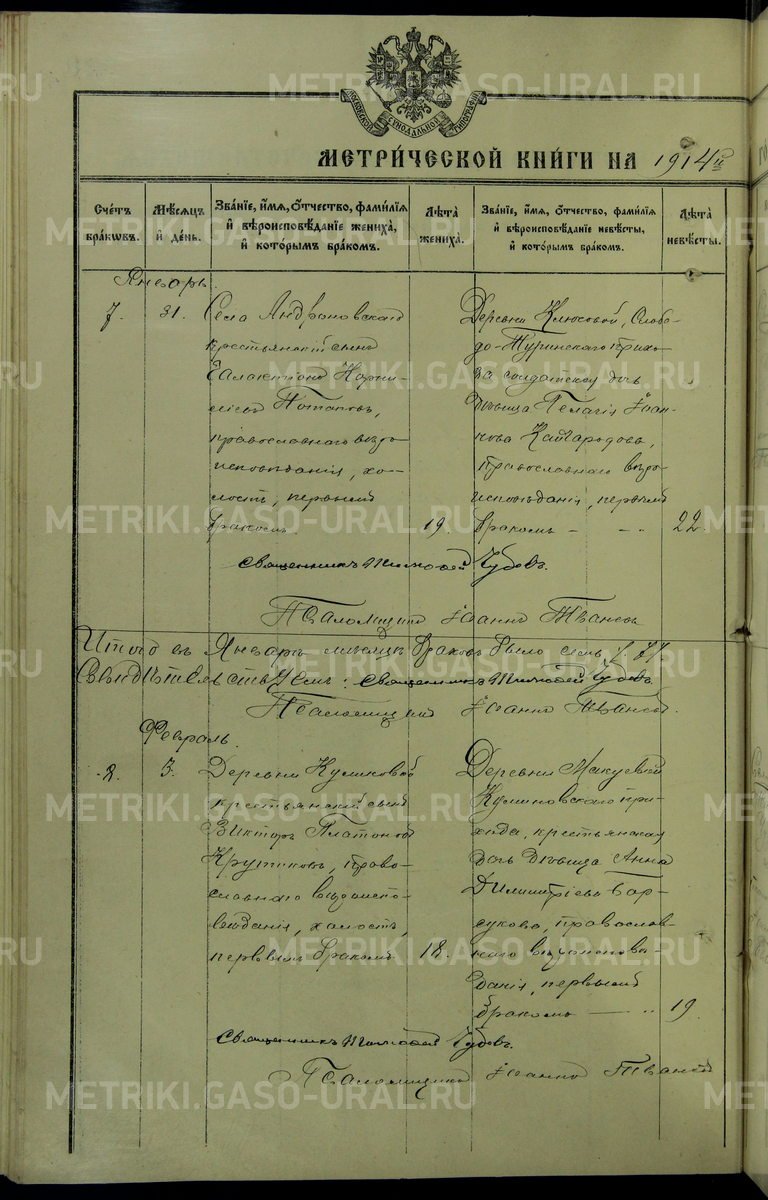 МОСКОВСКОЙ СУНОДАЛЬНОЙ ТИПОГРАФІИ
МЕТРИ́ЧЕСКОЙ КНИ́ГИ НА 1914й
Счётъ бра́кѡвъ.
Мѣ́сяцъ и҆ де́нь.
Зва́нїе, и҆́мя, ѻ҆́тчество, фами́лїя и҆ вѣроисповѣ́данїе жениха̀, и҆ кото́рымъ бра́комъ.
Лѣ́та жениха̀.
Зва́нїе, и҆́мя, ѻ҆́тчество, фами́лїя и҆ вѣроисповѣ́данїе невѣ́сты, и҆ кото́рымъ бра́комъ.
Лѣ́та невѣ́сты.
Январь.
7. 31.
Села Андроновскаго
крестьянскій сынъ
Галактіонъ Корни-
Потаповъ,
православнаго вѣро-
исповѣданія, хо-
лостъ, первымъ
бракомъ. 19.
Деревни Клюсовой, Слобо-
до-Туринскаго прихо-
да солдатская дочь
дѣвица Пелагія Іоан-
нова Кайгародова,
православнаго вѣро-
исповѣданія, первымъ
бракомъ — 22.
Священникъ Тимоѳей Чубовъ.
Псаломщикъ Іоаннъ
Итого въ Январѣ мѣсяцѣ браковъ было семь /7/
Священникъ Тимоѳей Чубовъ.
Псаломщикъ Іоаннъ
Февраль.
8. 3.
Деревни Куликовой
крестьянскій сынъ
Викторъ Платоновъ
Крутиковъ, право-
славнаго вѣроиспо-
вѣданія, холостъ,
первымъ бракомъ 18.
Деревни Макуевой
Куминовскаго при-
хода, крестьянская
дочь дѣвица Анна
Димитріева Бар-
сукова, православ-
наго вѣроисповѣ-
данія, первымъ
бракомъ — 19.
Священникъ Тимоѳей Чубовъ.
Псаломщикъ Іоаннъ
METRIKI.GASO-URAL.RU